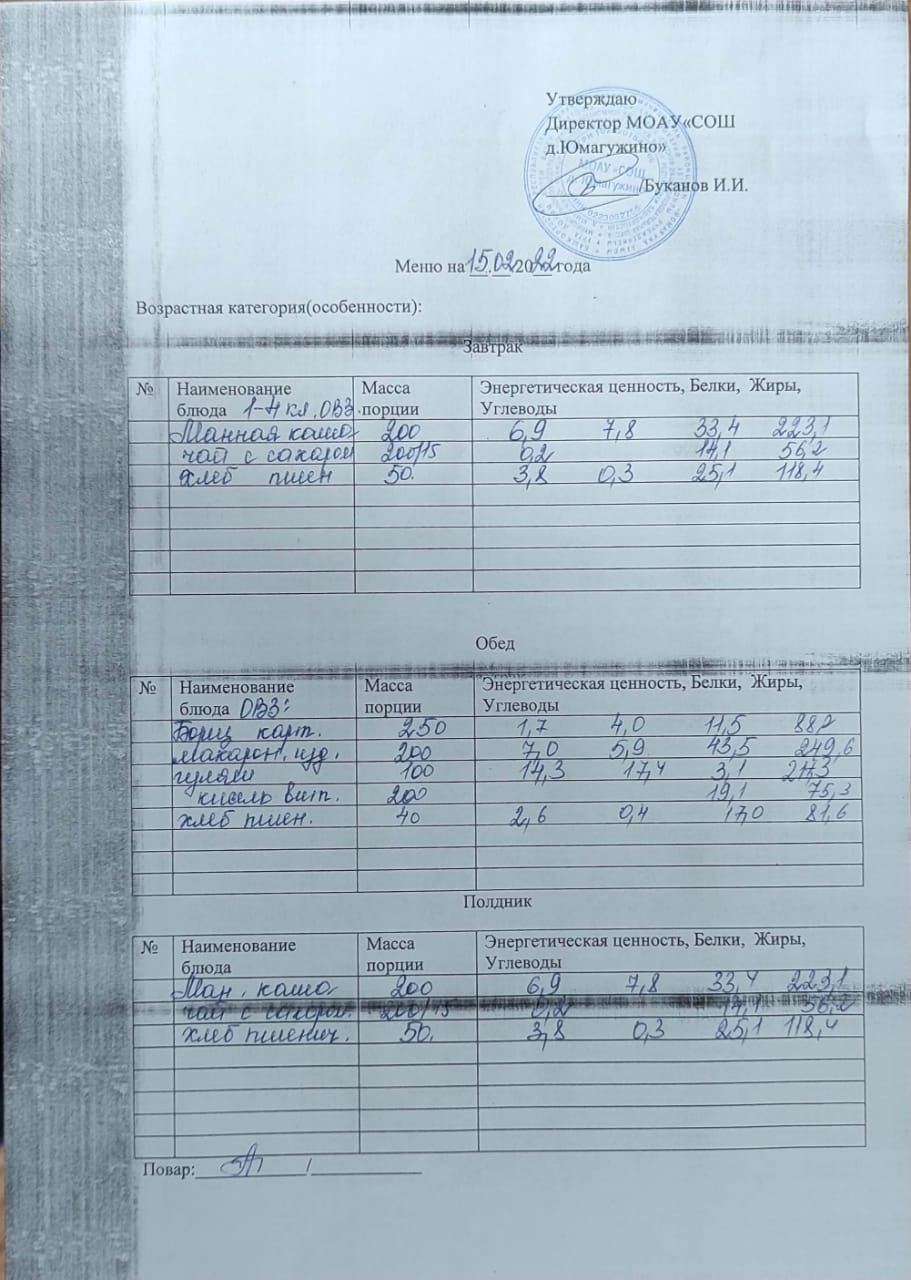 Утверждаю
Директор МОАУ«СОШ
д.Юмагужино»
МОАУ «СОШ
д. Юмагужино
/Буканов И.И.
Меню на 15.02.2022 года
Возрастная категория(особенности):
Завтрак
№ Наименование блюда 1-4 кл, ОВЗ. Масса порции Энергетическая ценность, Белки, Жиры, Углеводы
Манная каша 200 6,9 7,8 33,4 223,1
чай с сахаром 200/15 0,2 14,1 56,2
хлеб пшен 50. 3,8 0,3 25,1 118,4
Обед
№ Наименование блюда ОВЗ: Масса порции Энергетическая ценность, Белки, Жиры, Углеводы
Борщ карт. 250 1,7 4,0 11,5 88,2
Макарон. изд. 200 7,0 5,9 43,5 249,6
гуляш 100 14,3 17,4 3,1
кисель вит. 200 19,1 75,3
хлеб пшен. 40 2,6 0,4 17,0 81,6
Полдник
№ Наименование блюда Масса порции Энергетическая ценность, Белки, Жиры, Углеводы
Ман. каша 200 6,9 7,8 33,4 223,1
чай с сахаром. 200/15 0,2 14,1 56,2
хлеб пшенич. 50. 3,8 0,3 25,1 118,4
Повар: /